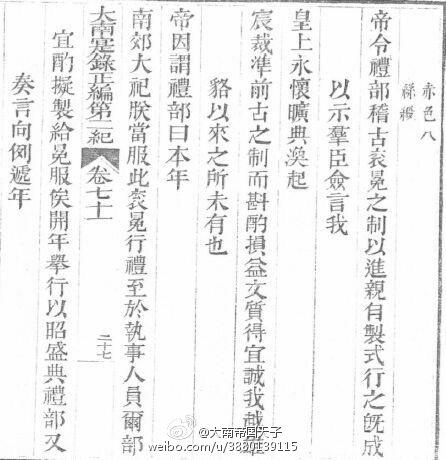 赤色八
絲緞
帝令禮部稽古衮冕之制以進親自製式行之既成
以示羣臣僉言我
皇上永懷曠典渙起
宸裁準前古之制而斟酌損益文質得宜誠我越雄
貉以來之所未有也
帝因謂禮部曰本年
南郊大祀朕當服此衮冕行禮至於執事人員爾部
大南寔錄正編第二紀 卷七十 二十七
宜酌擬製給冕服俟開年舉行以昭盛典禮部又
奏言向例遞年
@大南帝國天子
weibo.com/u/